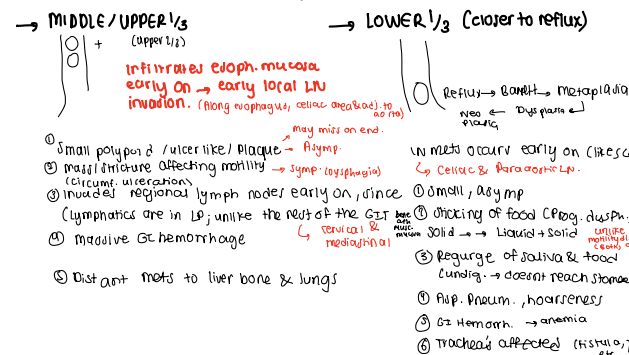 → MIDDLE/UPPER 1/3
(upper 2/3)
+
Infiltrates esoph. mucosa
early on → early local LN
invasion. (Along esophagus, celiac area & adj. to
aorta)
① Small polypoid / ulcer like / Plaque
→ may miss on end.
→ Asymp.
② mass/stricture affecting motility → symp. (dysphagia)
(circumf. ulceration)
③ Invades regional lymph nodes early on, since
(lymphatics are in LP; unlike the rest of the GIT
beneath musc. mucosa
↳ cervical &
mediastinal
④ massive GI hemorrhage
⑤ Distant mets to liver bone & lungs
→ LOWER 1/3 (closer to reflux)
Reflux → Barett → metaplasia
Neoplasia ← Dysplasia ←
LN mets occurs early on
↳ Celiac & Paraaortic LN.
① Small, asymp
② Sticking of food (Prog. dysph.
Solid → → Liquid + solid
unlike
③ Regurge of saliva & food
(undig. → doesnt reach stomac
④ Asp. Pneum., hoarseness
⑤ GI Hemorrh. → anemia
⑥ Trachea's affected (fistula,